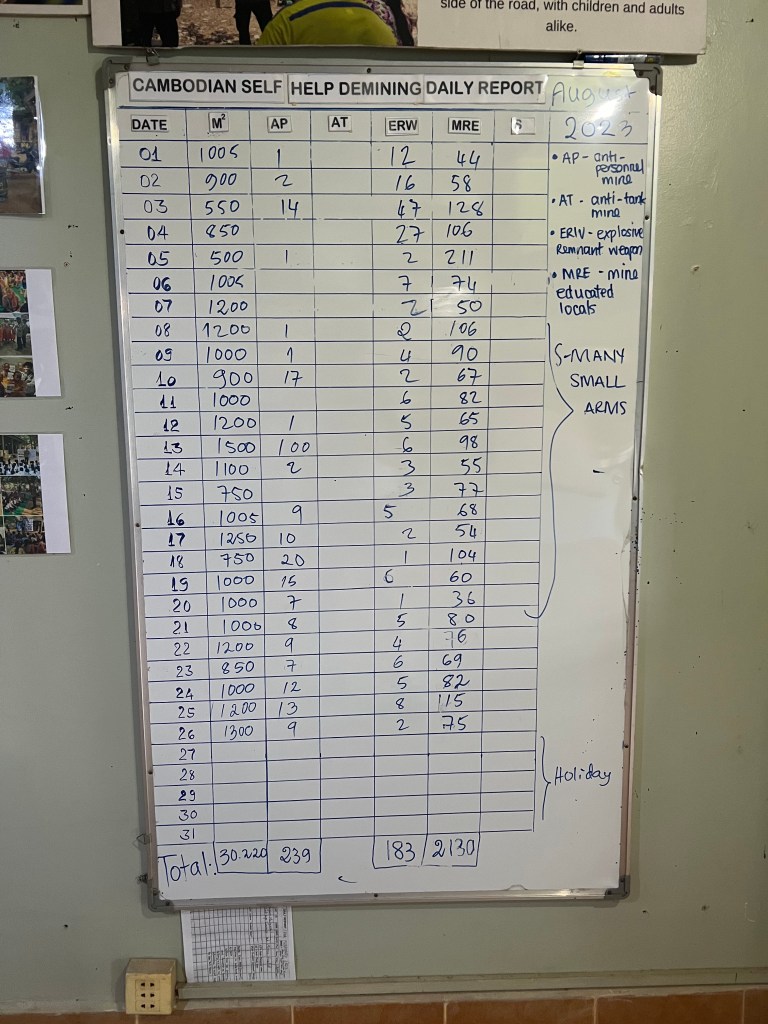 side of the road, with children and adults
alike.
CAMBODIAN SELF HELP DEMINING DAILY REPORT August
2023
DATE M² AP AT ERW MRE S
01 1005 1 12 44
02 900 2 16 58
03 550 14 47 128
04 850 27 106
05 500 1 2 211
06 1005 7 74
07 1200 2 50
08 1200 1 2 106
09 1000 1 4 90
10 900 17 2 67
11 1000 6 82
12 1200 1 5 65
13 1500 100 6 98
14 1100 2 3 55
15 750 3 77
16 1005 9 5 68
17 1250 10 2 54
18 750 20 1 104
19 1000 15 6 60
20 1000 7 1 36
21 1006 8 5 80
22 1200 9 4 76
23 850 7 6 69
24 1000 12 5 82
25 1200 13 8 115
26 1300 9 2 75
27
28
29
30
31
Total: 30.220 239 183 2130
• AP - anti-
personnel
mine
• AT - anti-tank
mine
• ERW - explosive
Remnant weapon
• MRE - mine
educated
locals
S-MANY
SMALL
ARMS
Holiday